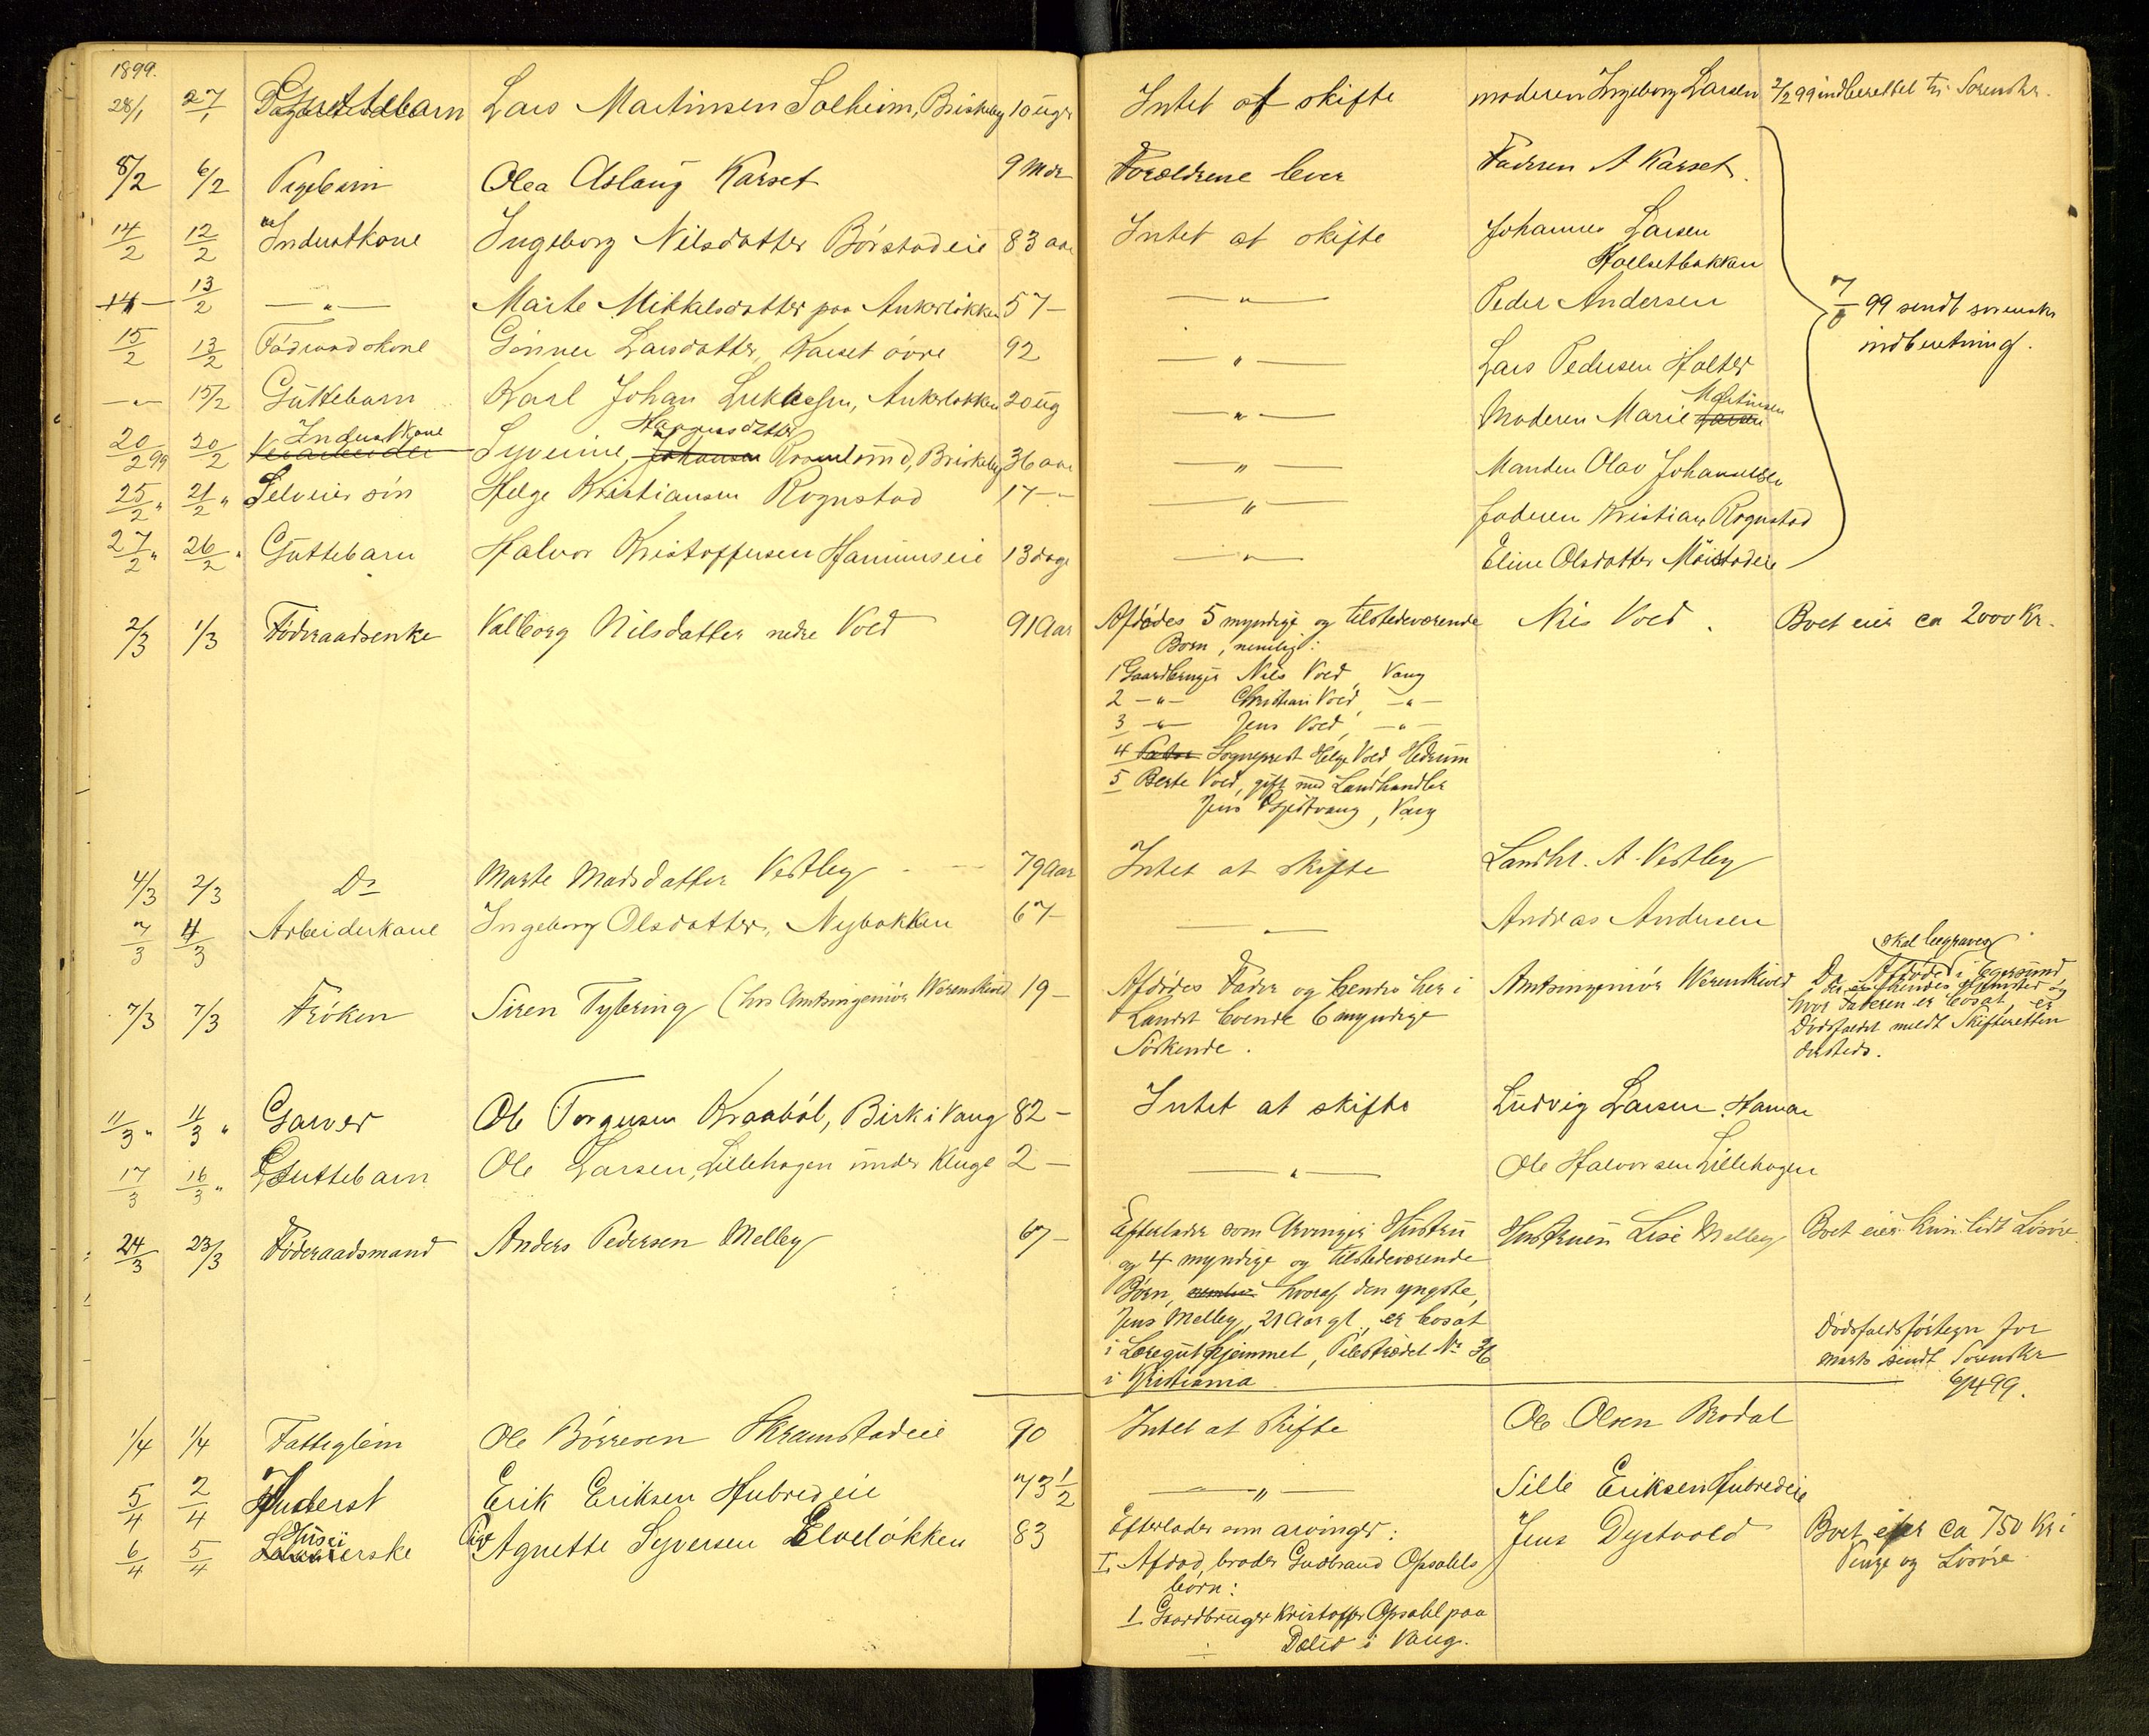 1899.
28/1 27/1 Guttebarn Lars Martinsen Solheim, Briskeby 10 uger Intet at skifte moderen Ingeborg Larsen 2/2 99 indberettet til Sorenskr.
8/2 6/2 Pigebarn Olea Aslaug Karset 9 Mdr Forældrene lever Faderen A Karset.
14/2 12/2 Inderstkone Ingeborg Nilsdatter Börstadeie 83 aar Intet at skifte Johannes Larsen
Hoelsetbakken
14 13/2 —"— Marte Mikkelsdatter paa Ankerløkken 57 — —"— Peder Andersen
7/3 99 sendt sorenskr
indberetning.
15/2 13/2 Föderaadskone Gönner Larsdatter, Karset övre 92 —"— Lars Pedersen Holter
—"— 15/2 Guttebarn Karl Johan Lukassen, Ankerløkken 20 ug —"— Moderen Marie Larsen Martinsen
20/2 99 20/2 Veiarbeider Inderstkone Syverine, Johansen Hansdatter Roselund, Briskeby 36 aar —"— Manden Olav Johannesen
25/2 " 21/2 " Selveier sön Helge Kristiansen Rognstad 17 — —"— faderen Kristian Rognstad
27/2 " 26/2 " Guttebarn Halvor Kristoffersen Hammerseie 13 dage —"— Eline Olsdatter Möistadeie
2/3 1/3 Föderaadsenke Valborg Nilsdatter nedre Vold 91 Aar Afdödes 5 myndige og tilstedeværende Nils Vold. Boet eier ca 2000 Kr.
Börn, nemlig:
1 Gaardbruger Nils Vold, Vang
2 —"— Christian Vold, —"—
3 —"— Jens Vold, —"—
4 Pastor Sogneprest Helge Vold, Hedrum
5 Berte Vold, gift med Landhandler
Jens Gjestvang, Vang
4/3 2/3 Do Marte Madsdatter Vestby 79 Aar Intet at skifte Landh. A. Vestby
7/3 4/3 Arbeiderkone Ingeborg Olsdatter, Nybakken 67 — —"— Andreas Andersen
7/3 7/3 Fröken Siren Tybring (hos Amtsingeniör Werenskiold 19 — Afdödes Fader og hendes her i Amtsingeniör Werenskiold Da Afdöde skal begraves i Egersund
Landet boende 6 myndige
Söskende.
der er hendes hjemsted og
hvor Faderen er bosat, er
Dödsfaldet meldt Skifteretten
dersteds.
11/3 " 11/3 " Garver Ole Torgersen Kraaböl, Birk i Vang 82 — Intet at skifte Ludvig Larsen, Hamar
17/3 16/3 " Guttebarn Ole Larsen, Lillehagen under Kluge 2 — —"— Ole Halvorsen Lillehagen
24/3 23/3 Föderaadsmand Anders Pedersen Melby 67 — Efterlader som Arvinger Hustru Hustruen Lise Melby Boet eier kun lidt Lösöre.
og 4 myndige og tilstedeværende
Börn, nemlig hvoraf den yngste,
Jens Melby, 21 Aar gl., er bosat
i Læreguthjemmet, Pilestrædet No 36
i Kristiania
Dödsfaldsfortegn for
marts sendt Sorenskr
6/4 99.
1/4 1/4 Fattiglem Ole Börresen Skramstadeie 90 Intet at skifte Ole Olsen Brodal
5/4 2/4 Inderst Erik Eriksen Hubredeie 73 1/2 —"— Sille Eriksen Hubredeie
6/4 5/4 Huseierske Pige Agnette Syversen Elvelökken 83 Efterlader som arvinger: Jens Dystvold Boet eier ca 750 Kr i
Penge og Lösöre
I. Afdöd broder Gudbrand Opsahls
börn:
1. Gaardbruger Kristoffer Opsahl paa
Dælid i Vang.